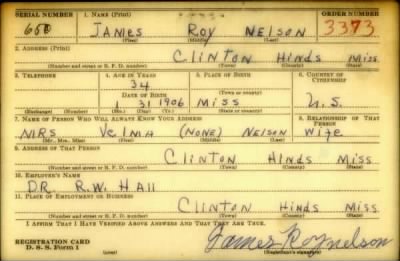 SERIAL NUMBER 1. NAME (Print) ORDER NUMBER
650 JAMES ROY NELSON 3373
(First) (Middle) (Last)
2. ADDRESS (Print)
CLINTON HINDS MISS
(Number and street or R. F. D. number) (Town) (County) (State)
3. TELEPHONE 4. AGE IN YEARS 5. PLACE OF BIRTH 6. COUNTRY OF CITIZENSHIP
34
DATE OF BIRTH (Town or county)
1 31 1906 MISS U.S.
(Exchange) (Number) (Mo.) (Day) (Yr.) (State or country)
7. NAME OF PERSON WHO WILL ALWAYS KNOW YOUR ADDRESS 8. RELATIONSHIP OF THAT PERSON
MRS VelMA (NONE) Nelson WIFE
(Mr., Mrs., Miss) (First) (Middle) (Last)
9. ADDRESS OF THAT PERSON
CLINTON HINDS MISS
(Number and street or R. F. D. number) (Town) (County) (State)
10. EMPLOYER'S NAME
DR. R.W. HAll
11. PLACE OF EMPLOYMENT OR BUSINESS
CLINTON HINDS MISS
(Number and street or R. F. D. number) (Town) (County) (State)
I AFFIRM THAT I HAVE VERIFIED ABOVE ANSWERS AND THAT THEY ARE TRUE.
REGISTRATION CARD James Roy nelson
D. S. S. Form 1 (Registrant's signature)